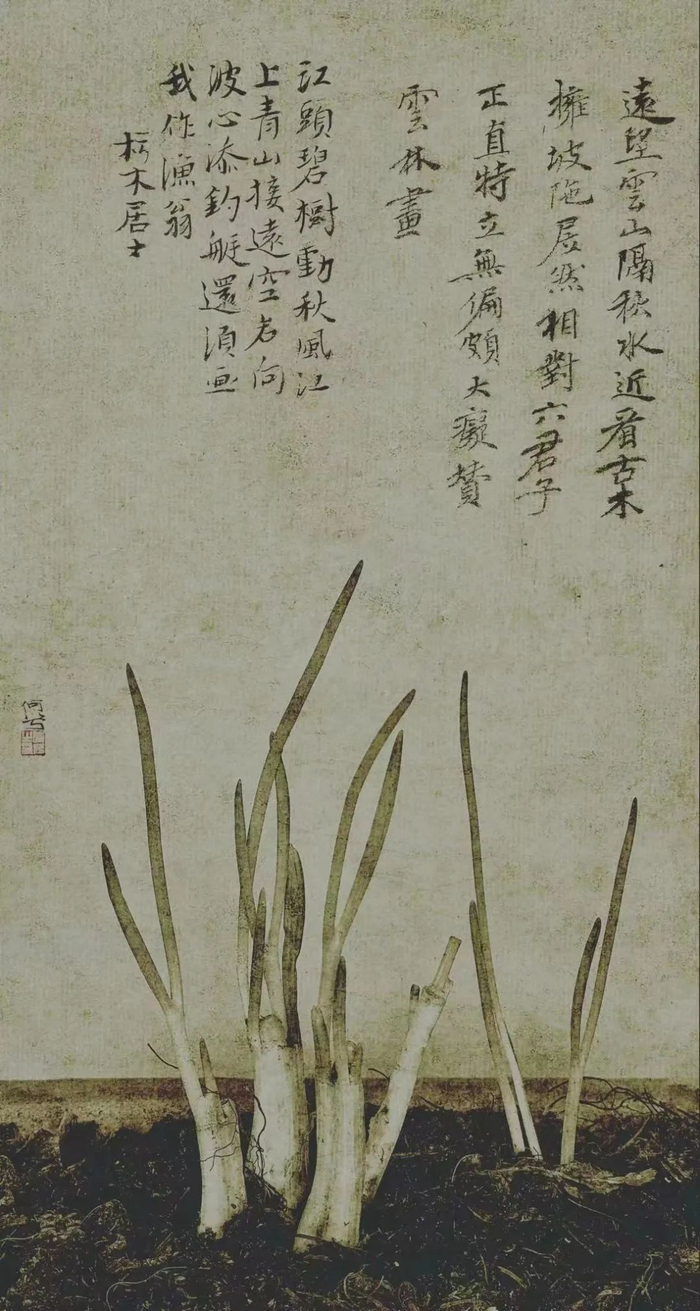 遠望雲山隔秋水近看古木
擁坡陁居然相對六君子
正直特立無偏頗大癡贊
雲林畫
江頭碧樹動秋風江
上青山接遠空若向
波心添釣艇還須畫
我作漁翁
木居士
何